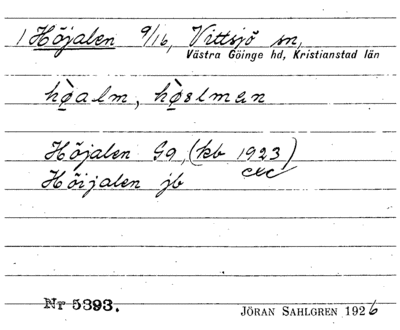 1 Höjalen 9/16, Vittsjö sn,
Västra Göinge hd, Kristianstad län
hø̀alm, hø̀slman
Höjalen Gg, (kb 1923)
Höijalen jb
Nr 5393. JÖRAN SAHLGREN 1926